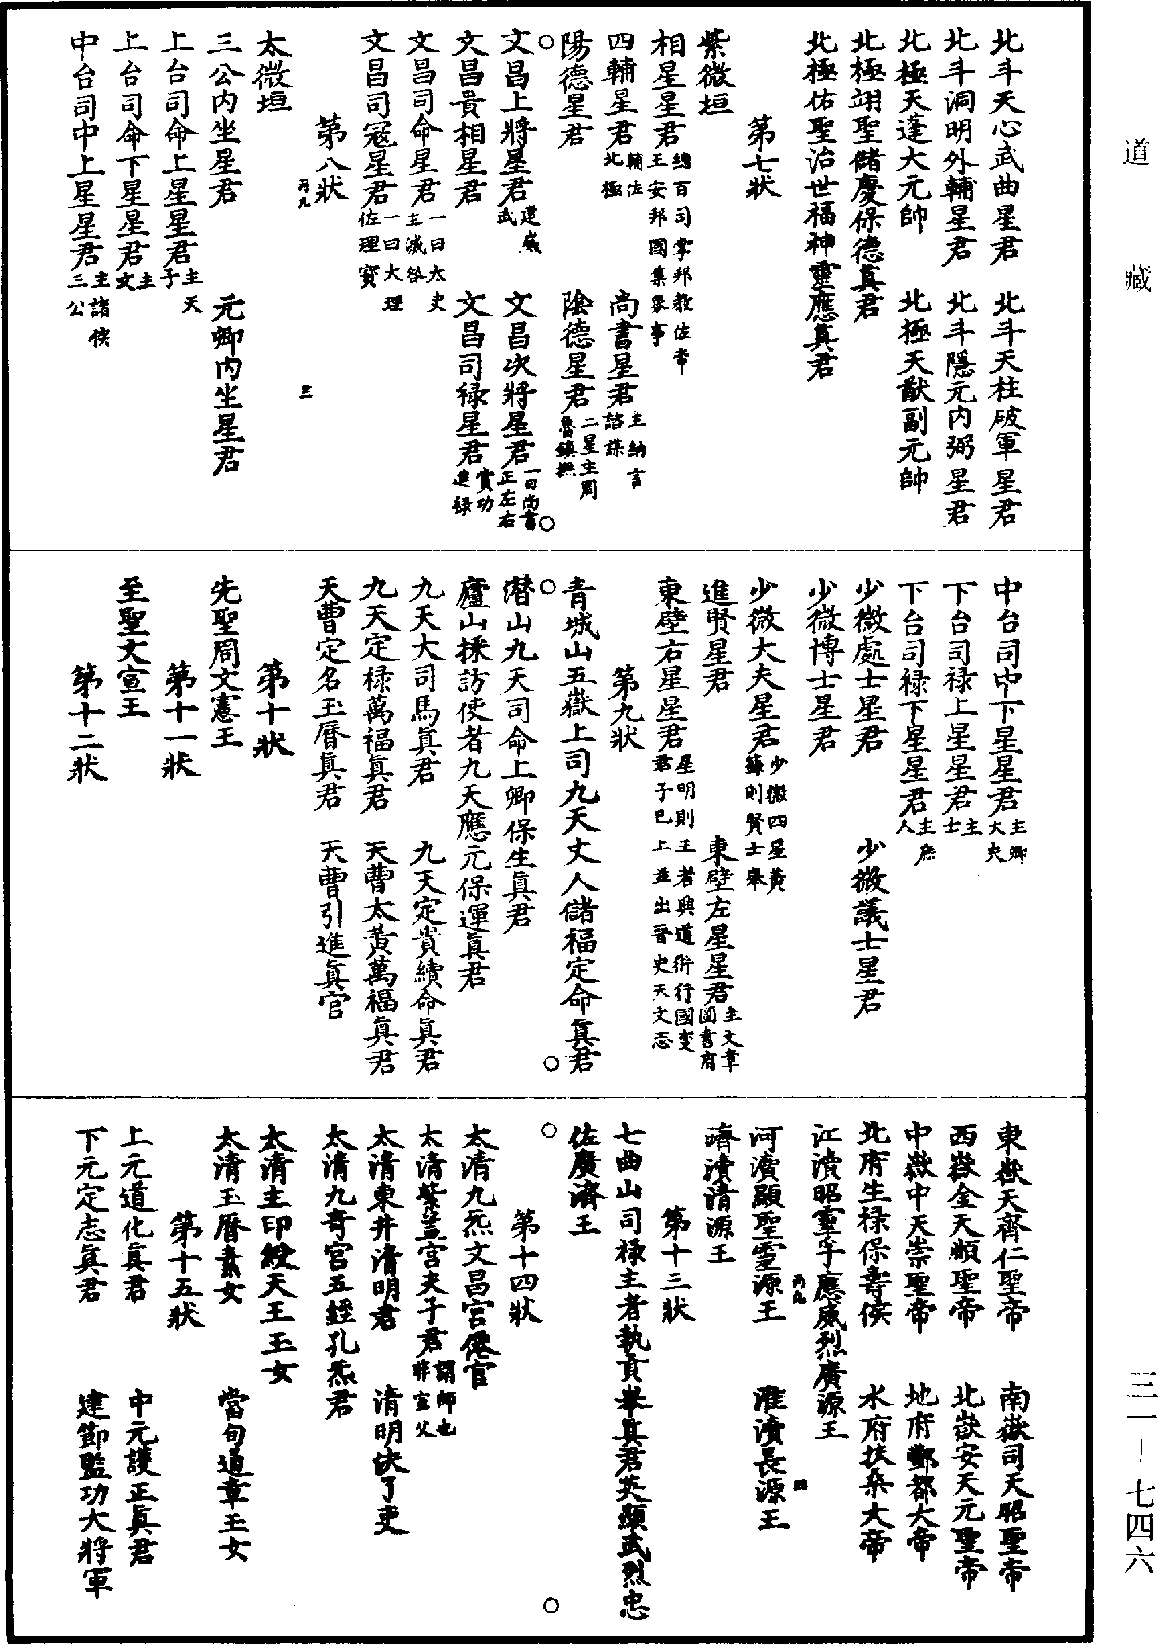 北斗天心武曲星君　北斗天柱破軍星君
北斗洞明外輔星君　北斗隱元內弼星君
北極天蓬大元帥　北極天猷副元帥
北極翊聖儲慶保德真君
北極佑聖治世福神靈應真君
第七狀
紫微垣
相星星君總百司掌邦教佐帝王安邦國集眾事
四輔星君輔佐北極　尚書星君主納言諮謀
陽德星君　陰德星君二星主周急鎮撫
文昌上將星君建威武　文昌次將星君一曰尚書正左右
文昌貴相星君　文昌司祿星君賞功進祿
文昌司命星君一曰太史主滅咎
文昌司寇星君一曰大理佐理寶
第八狀
太微垣
三公內坐星君　元卿內坐星君
上台司命上星星君主天子
上台司命下星星君主女
中台司中上星星君主諸侯三公
中台司中下星星君主卿大夫
下台司祿上星星君主士
下台司祿下星星君主庶人
少微處士星君　少微議士星君
少微博士星君
少微大夫星君少微四星黃蘇則賢士舉
進賢星君　東壁左星星君主文章圖書府
東壁右星星君星明則王者興道術行國多君子已上並出晉史天文志
第九狀
青城山五嶽上司九天丈人儲福定命真君
潛山九天司命上卿保生真君
廬山採訪使者九天應元保運真君
九天大司馬真君　九天定貴續命真君
九天定祿萬福真君　天曹太黃萬福真君
天曹定名玉曆真君　天曹引進真官
第十狀
先聖周文憲王
第十一狀
至聖文宣王
第十二狀
東嶽天齊仁聖帝　南嶽司天昭聖帝
西嶽金天順聖帝　北嶽安天元聖帝
中嶽中天崇聖帝　地府酆都大帝
北府生祿保壽侯　水府扶桑大帝
江瀆昭靈孚應威烈廣源王
河瀆顯聖靈源王　淮瀆長源王
濟瀆清源王
第十三狀
七曲山司祿主者執貢舉真君英顯武烈忠
佐廣濟王
第十四狀
太清九炁文昌宮僊官
太清紫蓋宮夫子君謂師也非宣父
太清東井清明君　清明快了吏
太清九奇宮五經孔炁君
太清主印綬天王玉女
太清玉曆素女　當旬通章玉女
第十五狀
上元道化真君　中元護正真君
下元定志真君　建節監功大將軍
道藏
三一—七四六